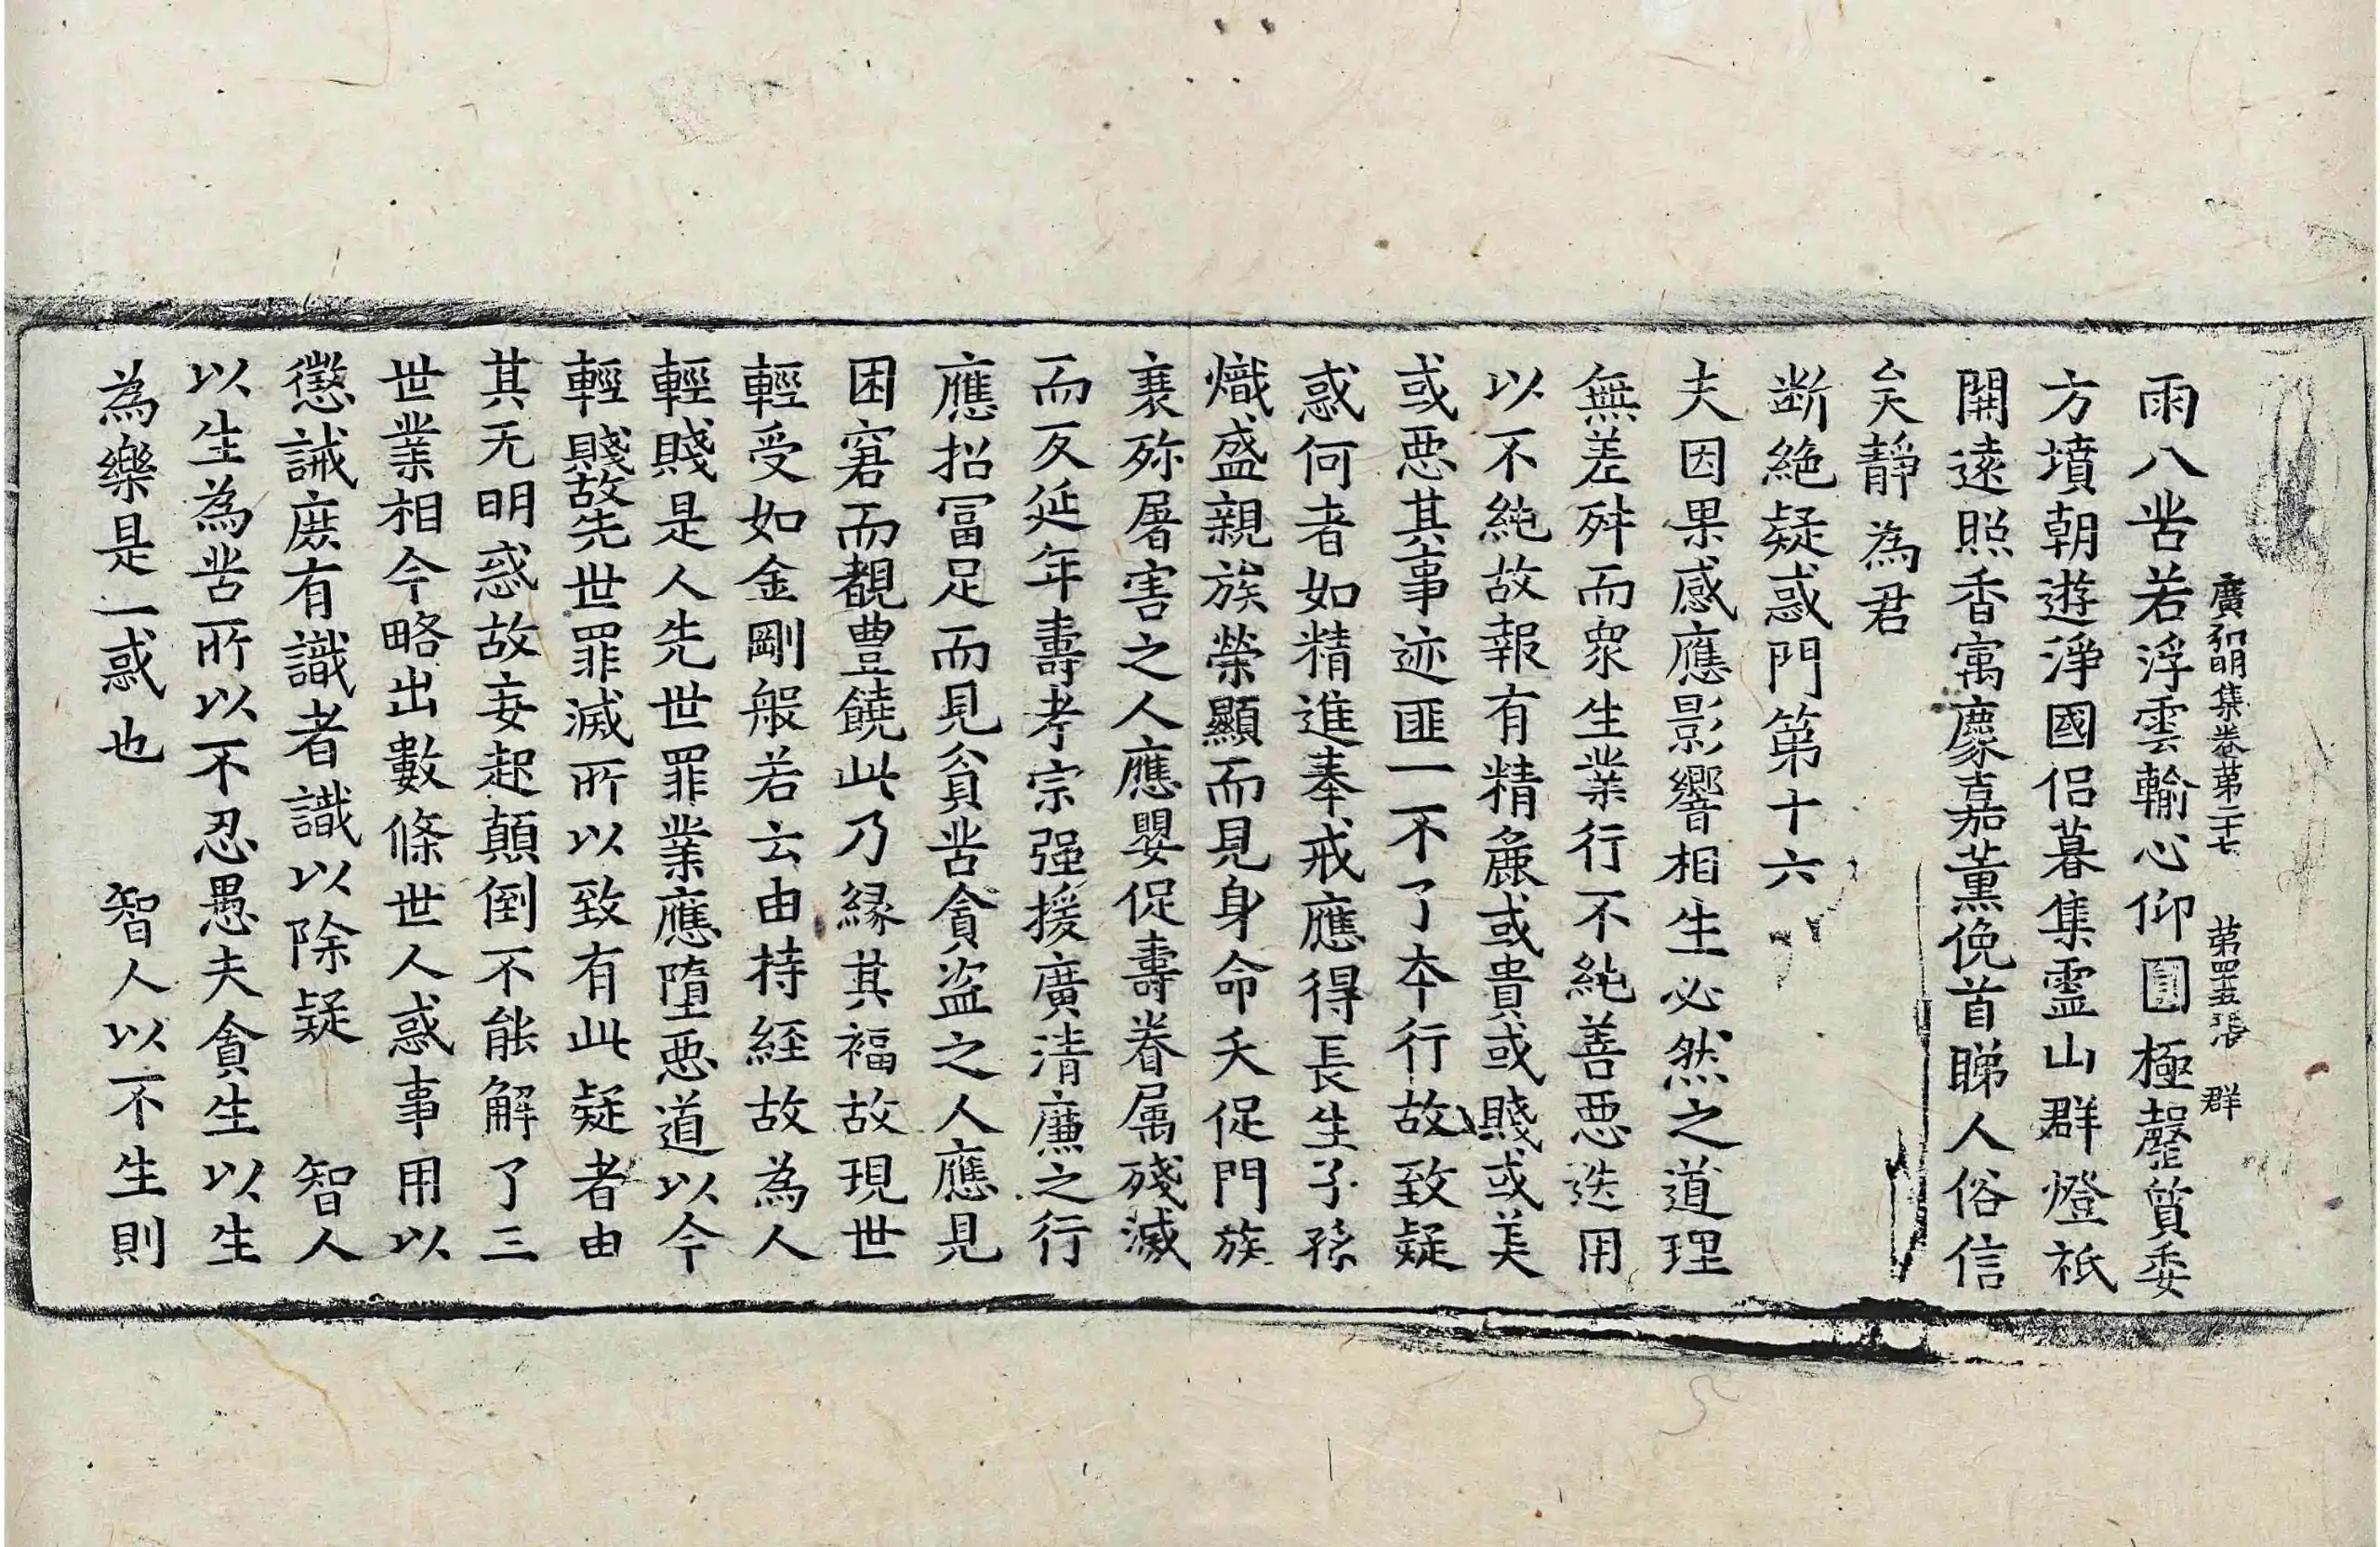 廣弘明集卷第二十七 第四十五張 群
雨八苦若浮雲輸心仰圓極罄質委
方墳朝遊淨國侶暮集靈山群燈祇
開遠照香寓麝嘉薰俛首睇人俗信
矣靜為君
断絶疑惑門第十六
夫因果感應影響相生必然之道理
無差舛而衆生業行不純善惡迭用
以不純故報有精麁或貴或賤或美
或惡其事迹匪一不了夲行故致疑
惑何者如精進奉戒應得長生子孫
熾盛親族榮顯而見身命夭促門族
衰殄屠害之人應嬰促壽眷属殘滅
而反延年壽考宗强援廣清廉之行
應招冨足而見貧苦貪盜之人應見
困窘而覩豊饒此乃縁其福故現世
輕受如金剛般若云由持経故為人
輕賤是人先世罪業應墮惡道以今
輕賤故先世罪滅所以致有此疑者由
其无明惑故妄起顛倒不能解了三
世業相今略出數條世人惑事用以
懲誡庻有識者識以除疑 智人
以生為苦所以不忍愚夫貪生以生
為樂是一惑也 智人以不生則